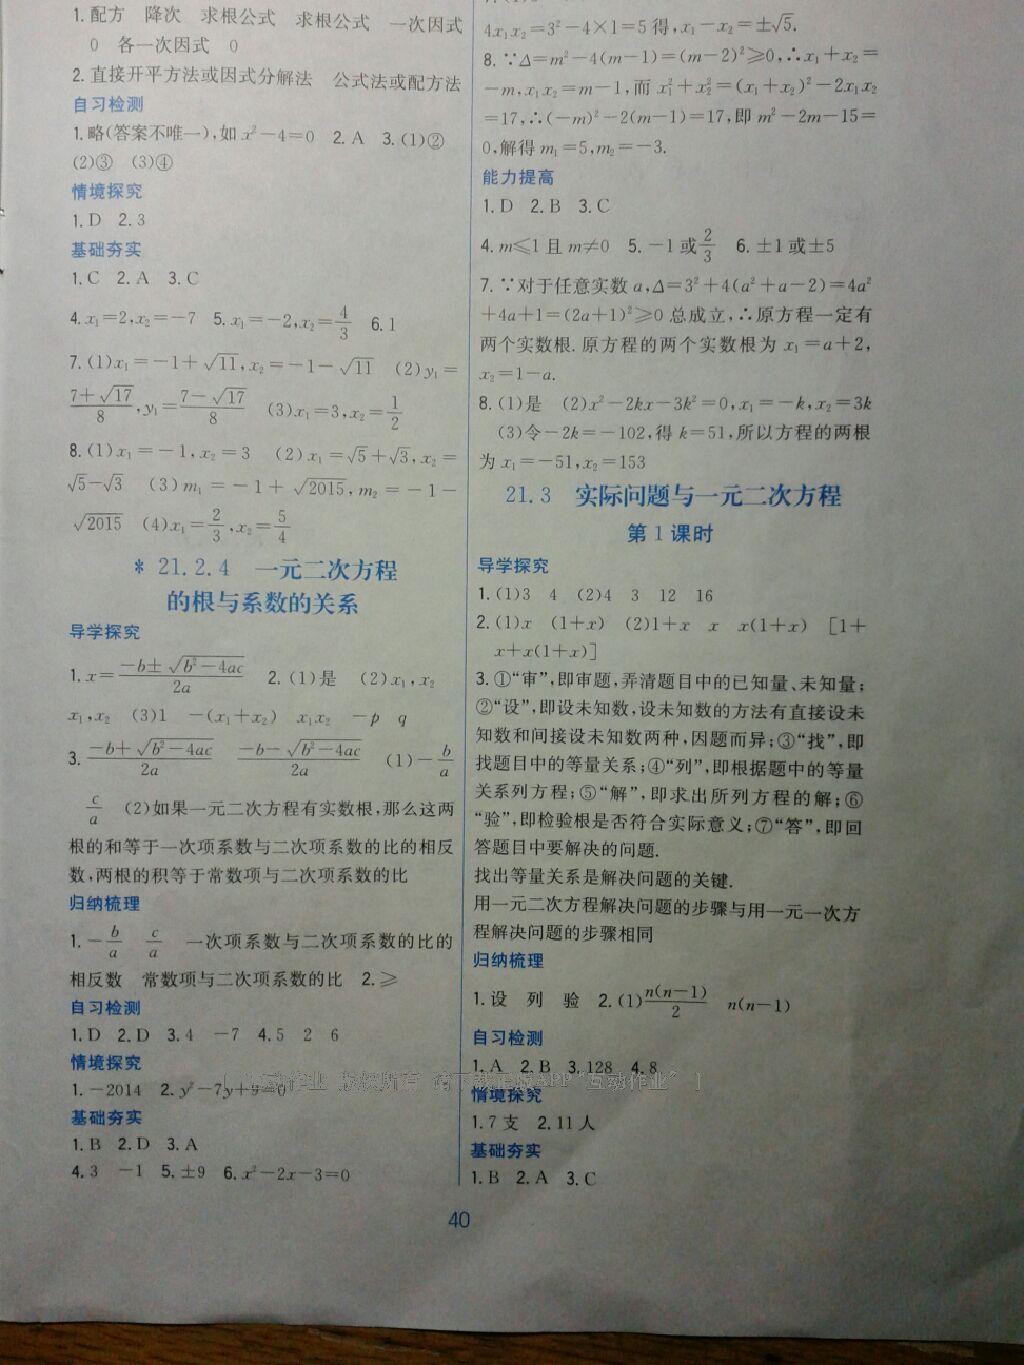 1.配方　降次　求根公式　求根公式　一次因式
0　各一次因式　0
2.直接开平方法或因式分解法　公式法或配方法
自习检测
1.略(答案不唯一),如 x²-4=0　2.A　3.(1)②
(2)③　(3)④
情境探究
1.D　2.3
基础夯实
1.C　2.A　3.C
4.x₁=2,x₂=-7　5.x₁=-2,x₂=4/3　6.1
7.(1)x₁=-1+√11,x₂=-1-√11　(2)y₁=
(7+√17)/8,y₁=(7-√17)/8　(3)x₁=3,x₂=1/2
8.(1)x₁=-1,x₂=3　(2)x₁=√5+√3,x₂=
√5-√3　(3)m₁=-1+√2015,m₂=-1-
√2015　(4)x₁=2/3,x₂=5/4
* 21.2.4　一元二次方程
的根与系数的关系
导学探究
1.x=(-b±√(b²-4ac))/2a　2.(1)是　(2)x₁,x₂
x₁,x₂　(3)1　-(x₁+x₂)　x₁x₂　-p　q
3.(-b+√(b²-4ac))/2a　(-b-√(b²-4ac))/2a　(1)-b/a
c/a　(2)如果一元二次方程有实数根,那么这两
根的和等于一次项系数与二次项系数的比的相反
数,两根的积等于常数项与二次项系数的比
归纳梳理
1.-b/a　c/a　一次项系数与二次项系数的比的
相反数　常数项与二次项系数的比　2.≥
自习检测
1.D　2.D　3.4　-7　4.5　2　6
情境探究
1.-2014　2.y²-7y+9=0
基础夯实
1.B　2.D　3.A
4.3　-1　5.±9　6.x²-2x-3=0
4x₁x₂=3²-4×1=5得,x₁-x₂=±√5.
8.∵Δ=m²-4(m-1)=(m-2)²≥0,∴x₁+x₂=
-m,x₁x₂=m-1,而 x₁²+x₂²=(x₁+x₂)²-2x₁x₂
=17,∴(-m)²-2(m-1)=17,即 m²-2m-15=
0,解得 m₁=5,m₂=-3.
能力提高
1.D　2.B　3.C
4.m≤1且 m≠0　5.-1或2/3　6.±1或±5
7.∵对于任意实数 a,Δ=3²+4(a²+a-2)=4a²
+4a+1=(2a+1)²≥0总成立,∴原方程一定有
两个实数根.原方程的两个实数根为 x₁=a+2,
x₂=1-a.
8.(1)是　(2)x²-2kx-3k²=0,x₁=-k,x₂=3k
(3)令-2k=-102,得 k=51,所以方程的两根
为 x₁=-51,x₂=153
21.3　实际问题与一元二次方程
第1课时
导学探究
1.(1)3　4　(2)4　3　12　16
2.(1)x　(1+x)　(2)1+x　x　x(1+x)　[1+
x+x(1+x)]
3.①“审”,即审题,弄清题目中的已知量、未知量;
②“设”,即设未知数,设未知数的方法有直接设未
知数和间接设未知数两种,因题而异;③“找”,即
找题目中的等量关系;④“列”,即根据题中的等量
关系列方程;⑤“解”,即求出所列方程的解;⑥
“验”,即检验根是否符合实际意义;⑦“答”,即回
答题目中要解决的问题.
找出等量关系是解决问题的关键.
用一元二次方程解决问题的步骤与用一元一次方
程解决问题的步骤相同
归纳梳理
1.设　列　验　2.(1)n(n-1)/2　n(n-1)
自习检测
1.A　2.B　3.128　4.8
情境探究
1.7支　2.11人
基础夯实
1.B　2.A　3.C
40